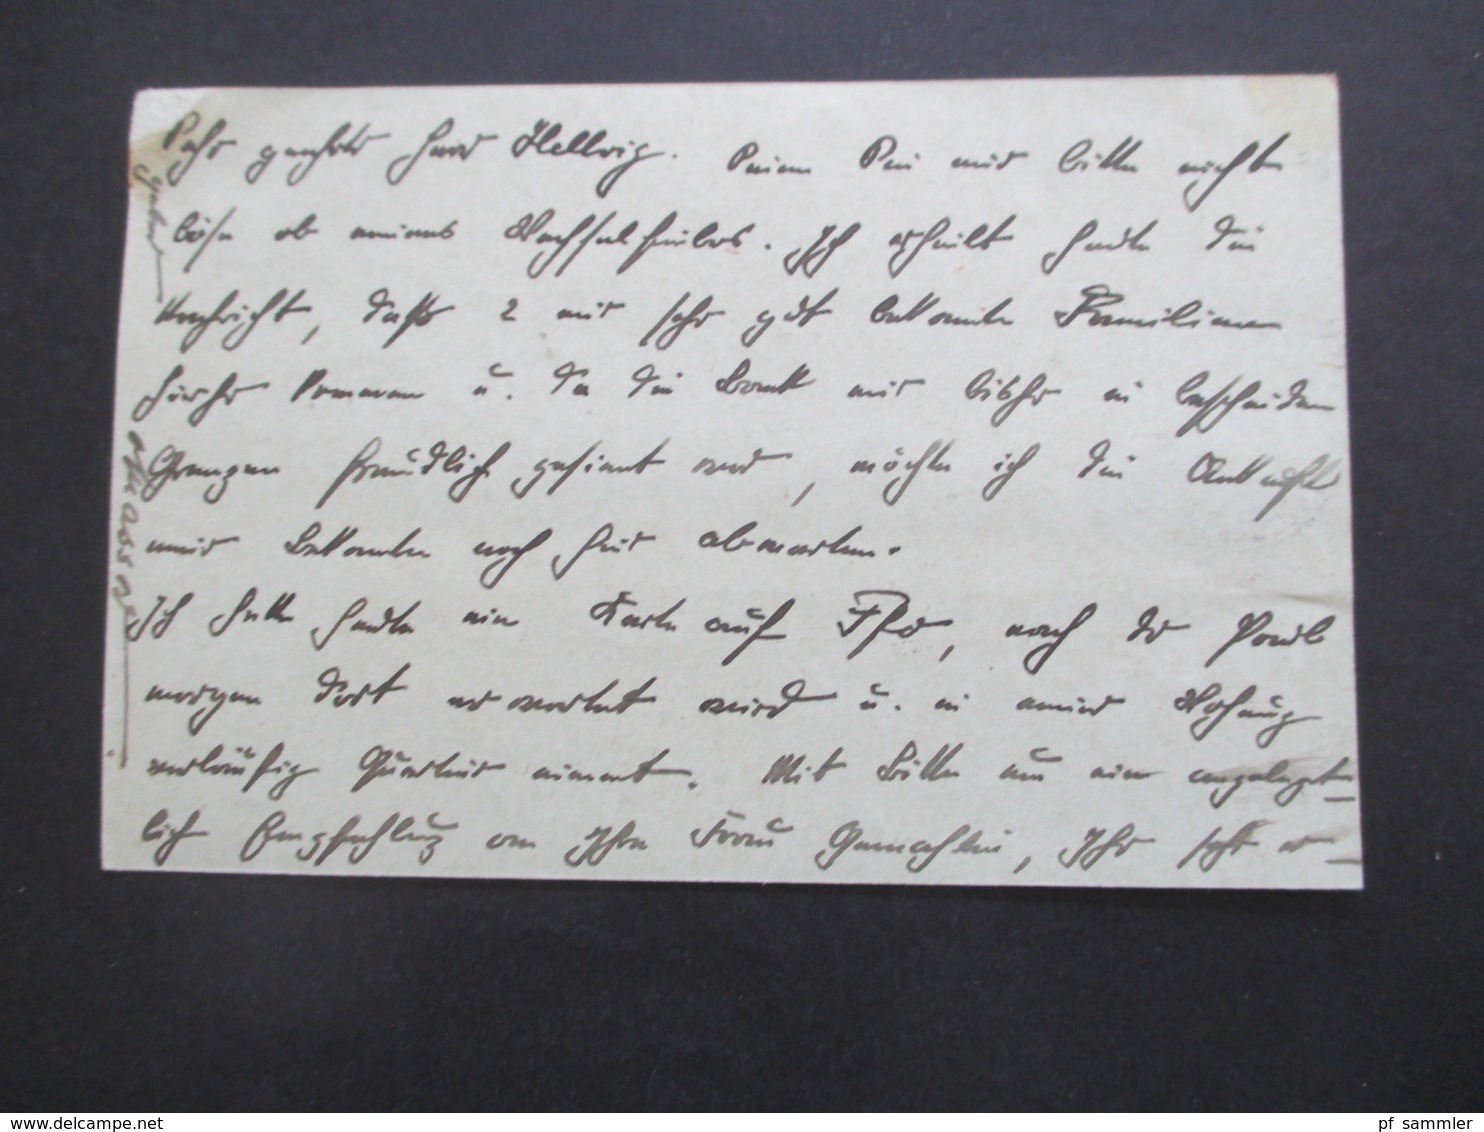 Sehr geehrter Herr Hellwig. Seien Sie mir bitte nicht
böse ob meines Wechselfiebers. Ich erhielt heute die
Nachricht, daß 2 mir sehr gut bekannte Familien
hierher kommen u. da die Bank mir bisher in bescheiden
Grenzen freundlich gesinnt war, möchte ich die Ankunft
meiner Bekannten noch hier abwarten.
Ich hatte heute eine Karte auf, nach der Paul
morgen dort erwartet wird u. in meiner Wohnung
vorläufig Quartier nimmt. Mit Bitte um eine angelegent-
liche Empfehlung an Ihre Frau Gemahlin, Ihr sehr er-
gebener
delcampe.net
pf_sammler